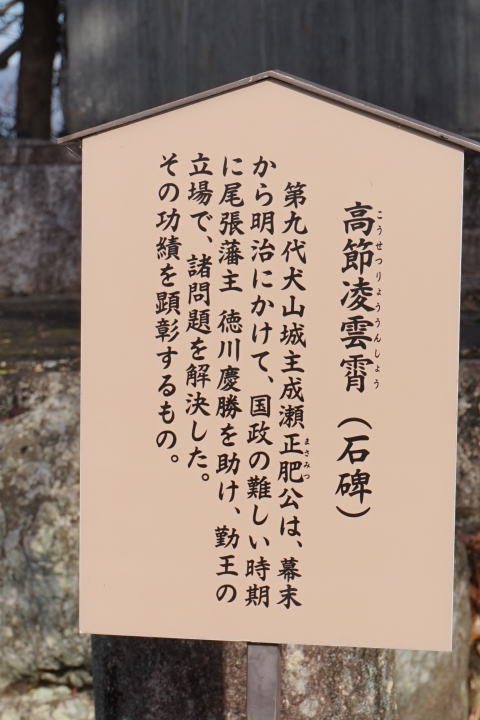 高節凌雲霄（石碑）
こうせつりょううんしょう
第九代犬山城主成瀬正肥公は、幕末
まさみつ
から明治にかけて、国政の難しい時期
に尾張藩主 徳川慶勝を助け、勤王の
立場で、諸問題を解決した。
その功績を顕彰するもの。